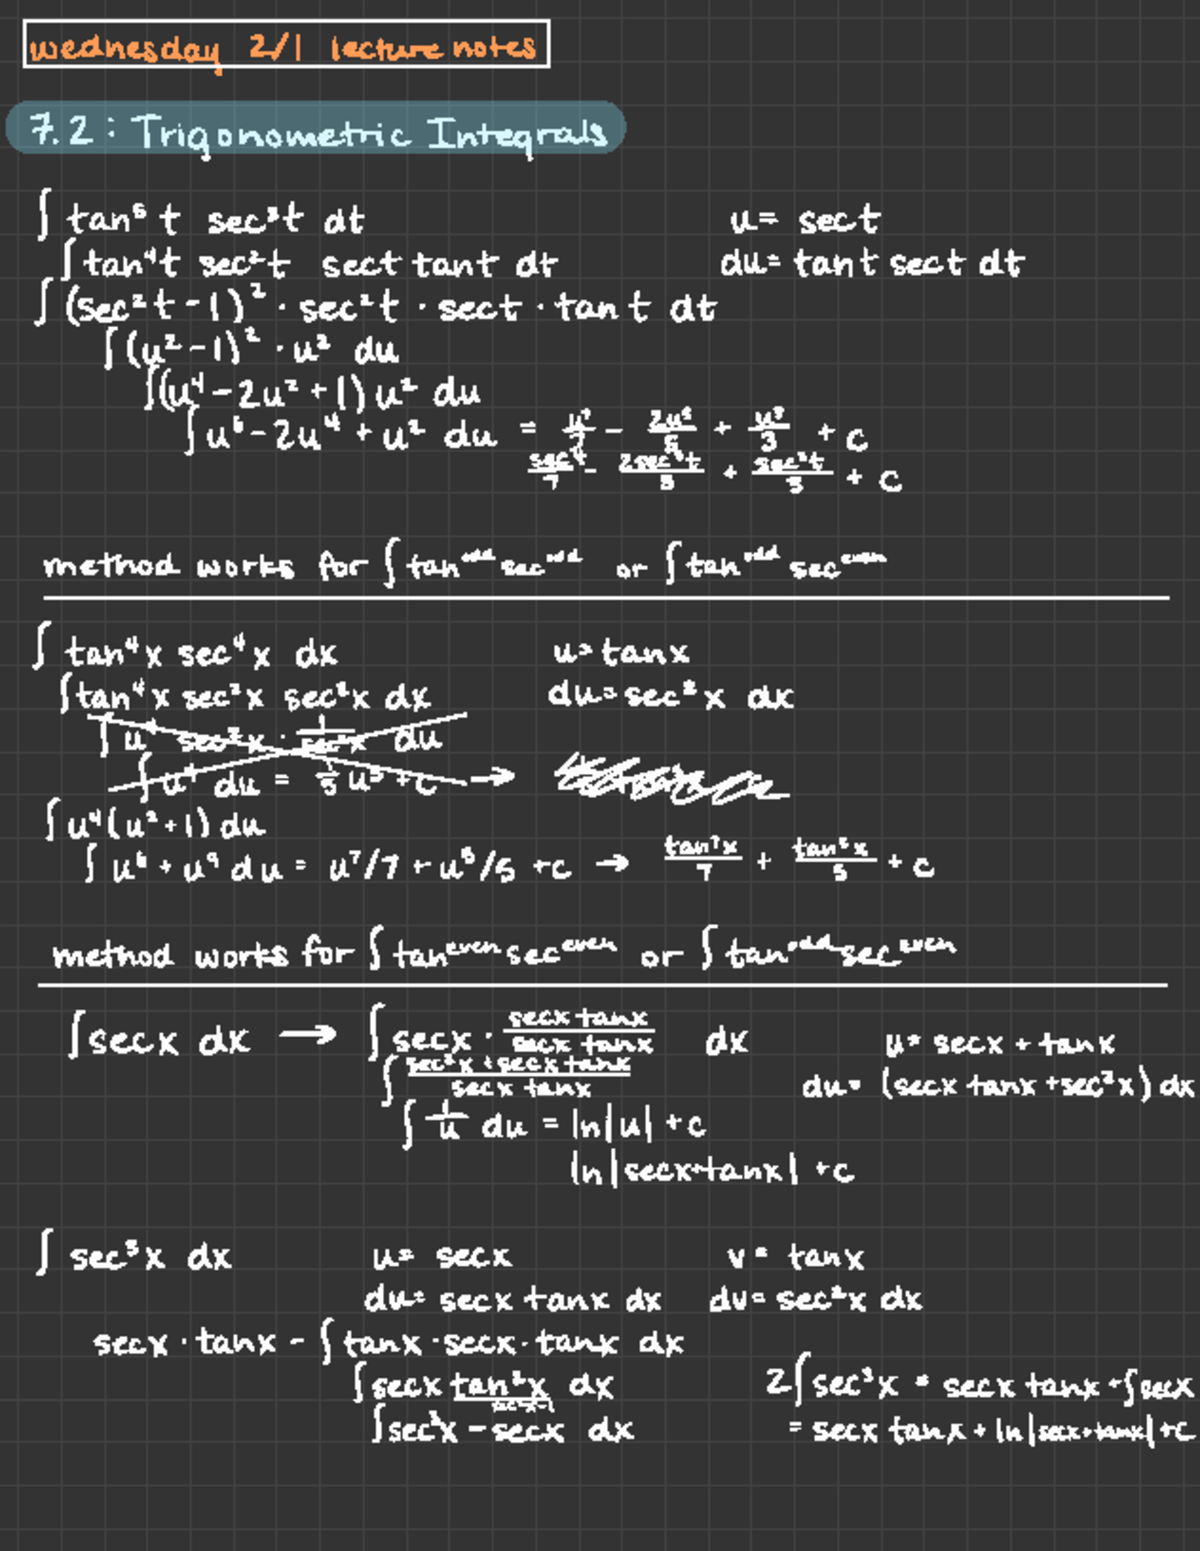 wednesday 2/1 lecture notes
7.2: Trigonometric Integrals
∫ tan⁵t sec³t dt u= sect
∫tan⁴t sec²t sect tant dt du= tant sect dt
∫(sec²t-1)² · sec²t · sect · tant dt
∫(u²-1)² · u² du
∫(u⁴-2u²+1)u² du
∫u⁶-2u⁴+u² du = u⁷/7 - 2u⁵/5 + u³/3 + c
sec⁷t/7 - 2sec⁵t/5 + sec³t/3 + c
method works for ∫tan^odd sec^odd or ∫tan^odd sec^even
∫ tan⁴x sec⁴x dx u=tanx
∫tan⁴x sec²x sec²x dx du=sec²x dx
∫ u⁴ sec²x · 1/sec²x du
∫ u⁴ du = 1/5 u⁵ + c →
∫u⁴(u²+1) du
∫ u⁶ + u⁴ du = u⁷/7 + u⁵/5 + c → tan⁷x/7 + tan⁵x/5 + c
method works for ∫tan^even sec^even or ∫tan^odd sec^even
∫secx dx → ∫secx · secx tanx/secx tanx dx u= secx + tanx
∫ sec²x + secx tanx/secx tanx du= (secx tanx + sec²x) dx
∫ 1/u du = ln|u| + c
ln|secx+tanx| + c
∫ sec³x dx u= secx v= tanx
du= secx tanx dx dv= sec²x dx
secx · tanx - ∫tanx · secx · tanx dx
∫secx tan²x dx 2∫sec³x = secx tanx + ∫secx
sec²x-1
∫sec³x - secx dx = secx tanx + ln|secx+tanx| + c